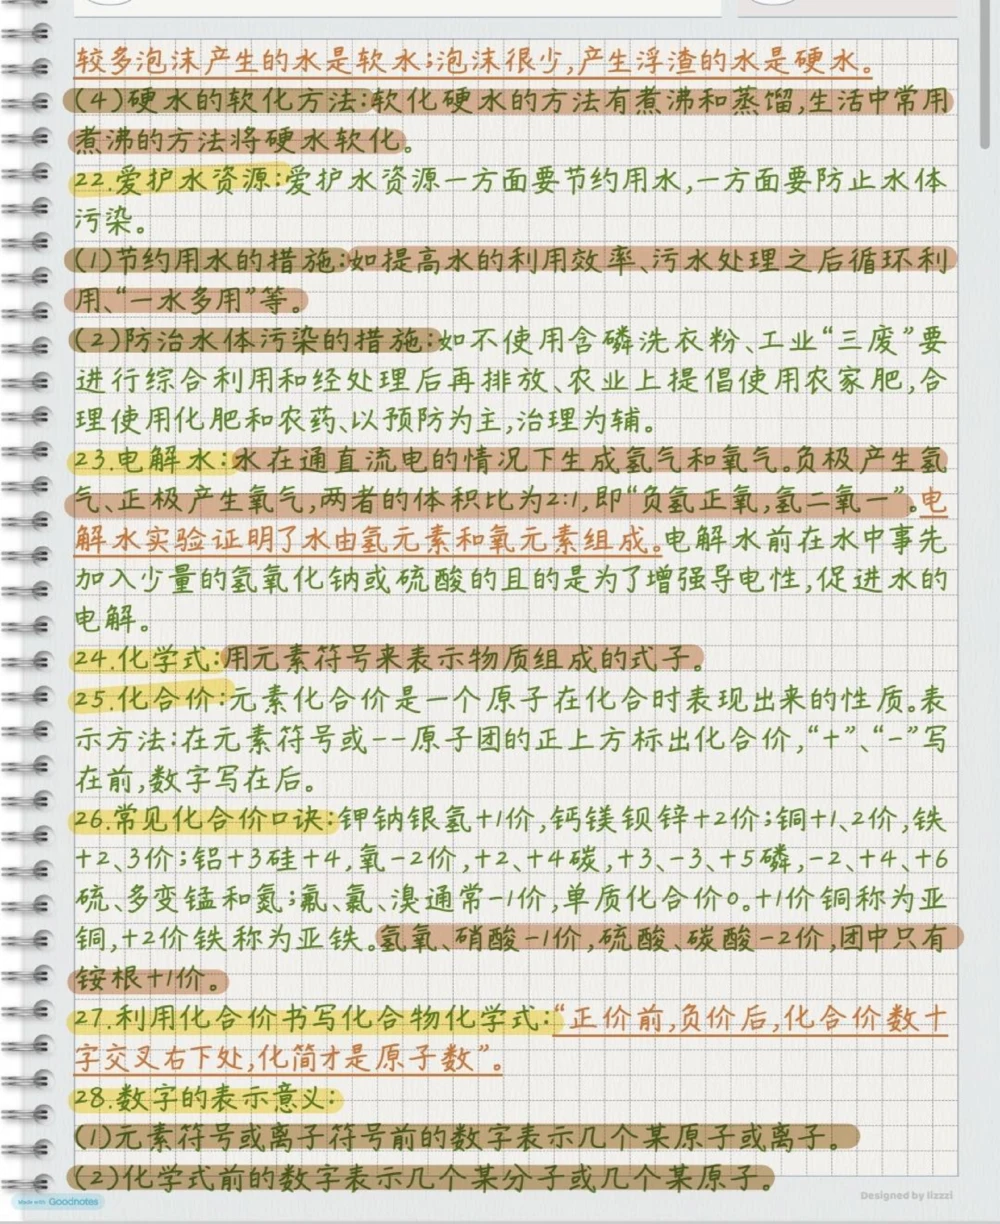 较多泡沫产生的水是软水;泡沫很少,产生浮渣的水是硬水。
(4)硬水的软化方法:软化硬水的方法有煮沸和蒸馏,生活中常用
煮沸的方法将硬水软化。
22.爱护水资源:爱护水资源一方面要节约用水,一方面要防止水体
污染。
(1)节约用水的措施:如提高水的利用效率、污水处理之后循环利
用、“一水多用”等。
(2)防治水体污染的措施:如不使用含磷洗衣粉、工业“三废”要
进行综合利用和经处理后再排放、农业上提倡使用农家肥,合
理使用化肥和农药、以预防为主,治理为辅。
23.电解水:水在通直流电的情况下生成氢气和氧气。负极产生氢
气、正极产生氧气,两者的体积比为2:1,即“负氢正氧,氢二氧一”。电
解水实验证明了水由氢元素和氧元素组成。电解水前在水中事先
加入少量的氢氧化钠或硫酸的且的是为了增强导电性,促进水的
电解。
24.化学式:用元素符号来表示物质组成的式子。
25.化合价:元素化合价是一个原子在化合时表现出来的性质。表
示方法:在元素符号或--原子团的正上方标出化合价,“+”、“-”写
在前,数字写在后。
26.常见化合价口诀:钾钠银氢+1价,钙镁钡锌+2价;铜+1、2价,铁
+2、3价;铝+3硅+4,氧-2价,+2、+4碳,+3、-3、+5磷,-2、+4、+6
硫、多变锰和氮;氟、氯、溴通常-1价,单质化合价0。+1价铜称为亚
铜,+2价铁称为亚铁。氢氧、硝酸-1价,硫酸、碳酸-2价,团中只有
铵根+1价。
27.利用化合价书写化合物化学式:“正价前,负价后,化合价数十
字交叉右下处,化简才是原子数”。
28.数字的表示意义:
(1)元素符号或离子符号前的数字表示几个某原子或离子。
(2)化学式前的数字表示几个某分子或几个某原子。
Made with Goodnotes
Designed by lizzzi